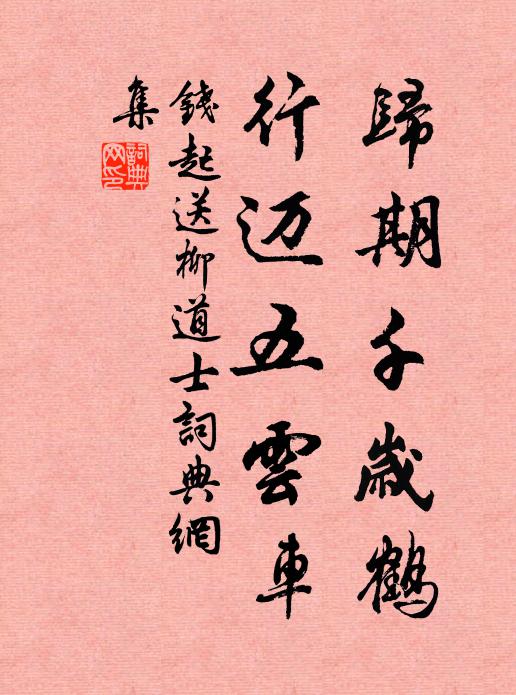 歸期千歲鶴
行迈五雲車
錢起送柳道士詞典網
集
詞典網印